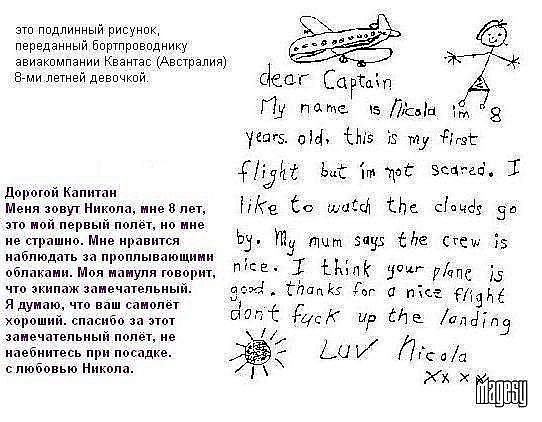 это подлинный рисунок,
переданный бортпроводнику
авиакомпании Квантас (Австралия)
8-ми летней девочкой.
dear Captain
My name is Nicola im 8
years old, this is my first
flight but im not scared. I
like to watch the clouds go
by. My mum says the crew is
nice. I think your plane is
good. thanks for a nice flight
don't fuck up the landing
LUV Nicola
xxxx
Дорогой Капитан
Меня зовут Никола, мне 8 лет,
это мой первый полёт, но мне
не страшно. Мне нравится
наблюдать за проплывающими
облаками. Моя мамуля говорит,
что экипаж замечательный.
Я думаю, что ваш самолёт
хороший. спасибо за этот
замечательный полёт, не
наебнитесь при посадке.
с любовью Никола.
magesy